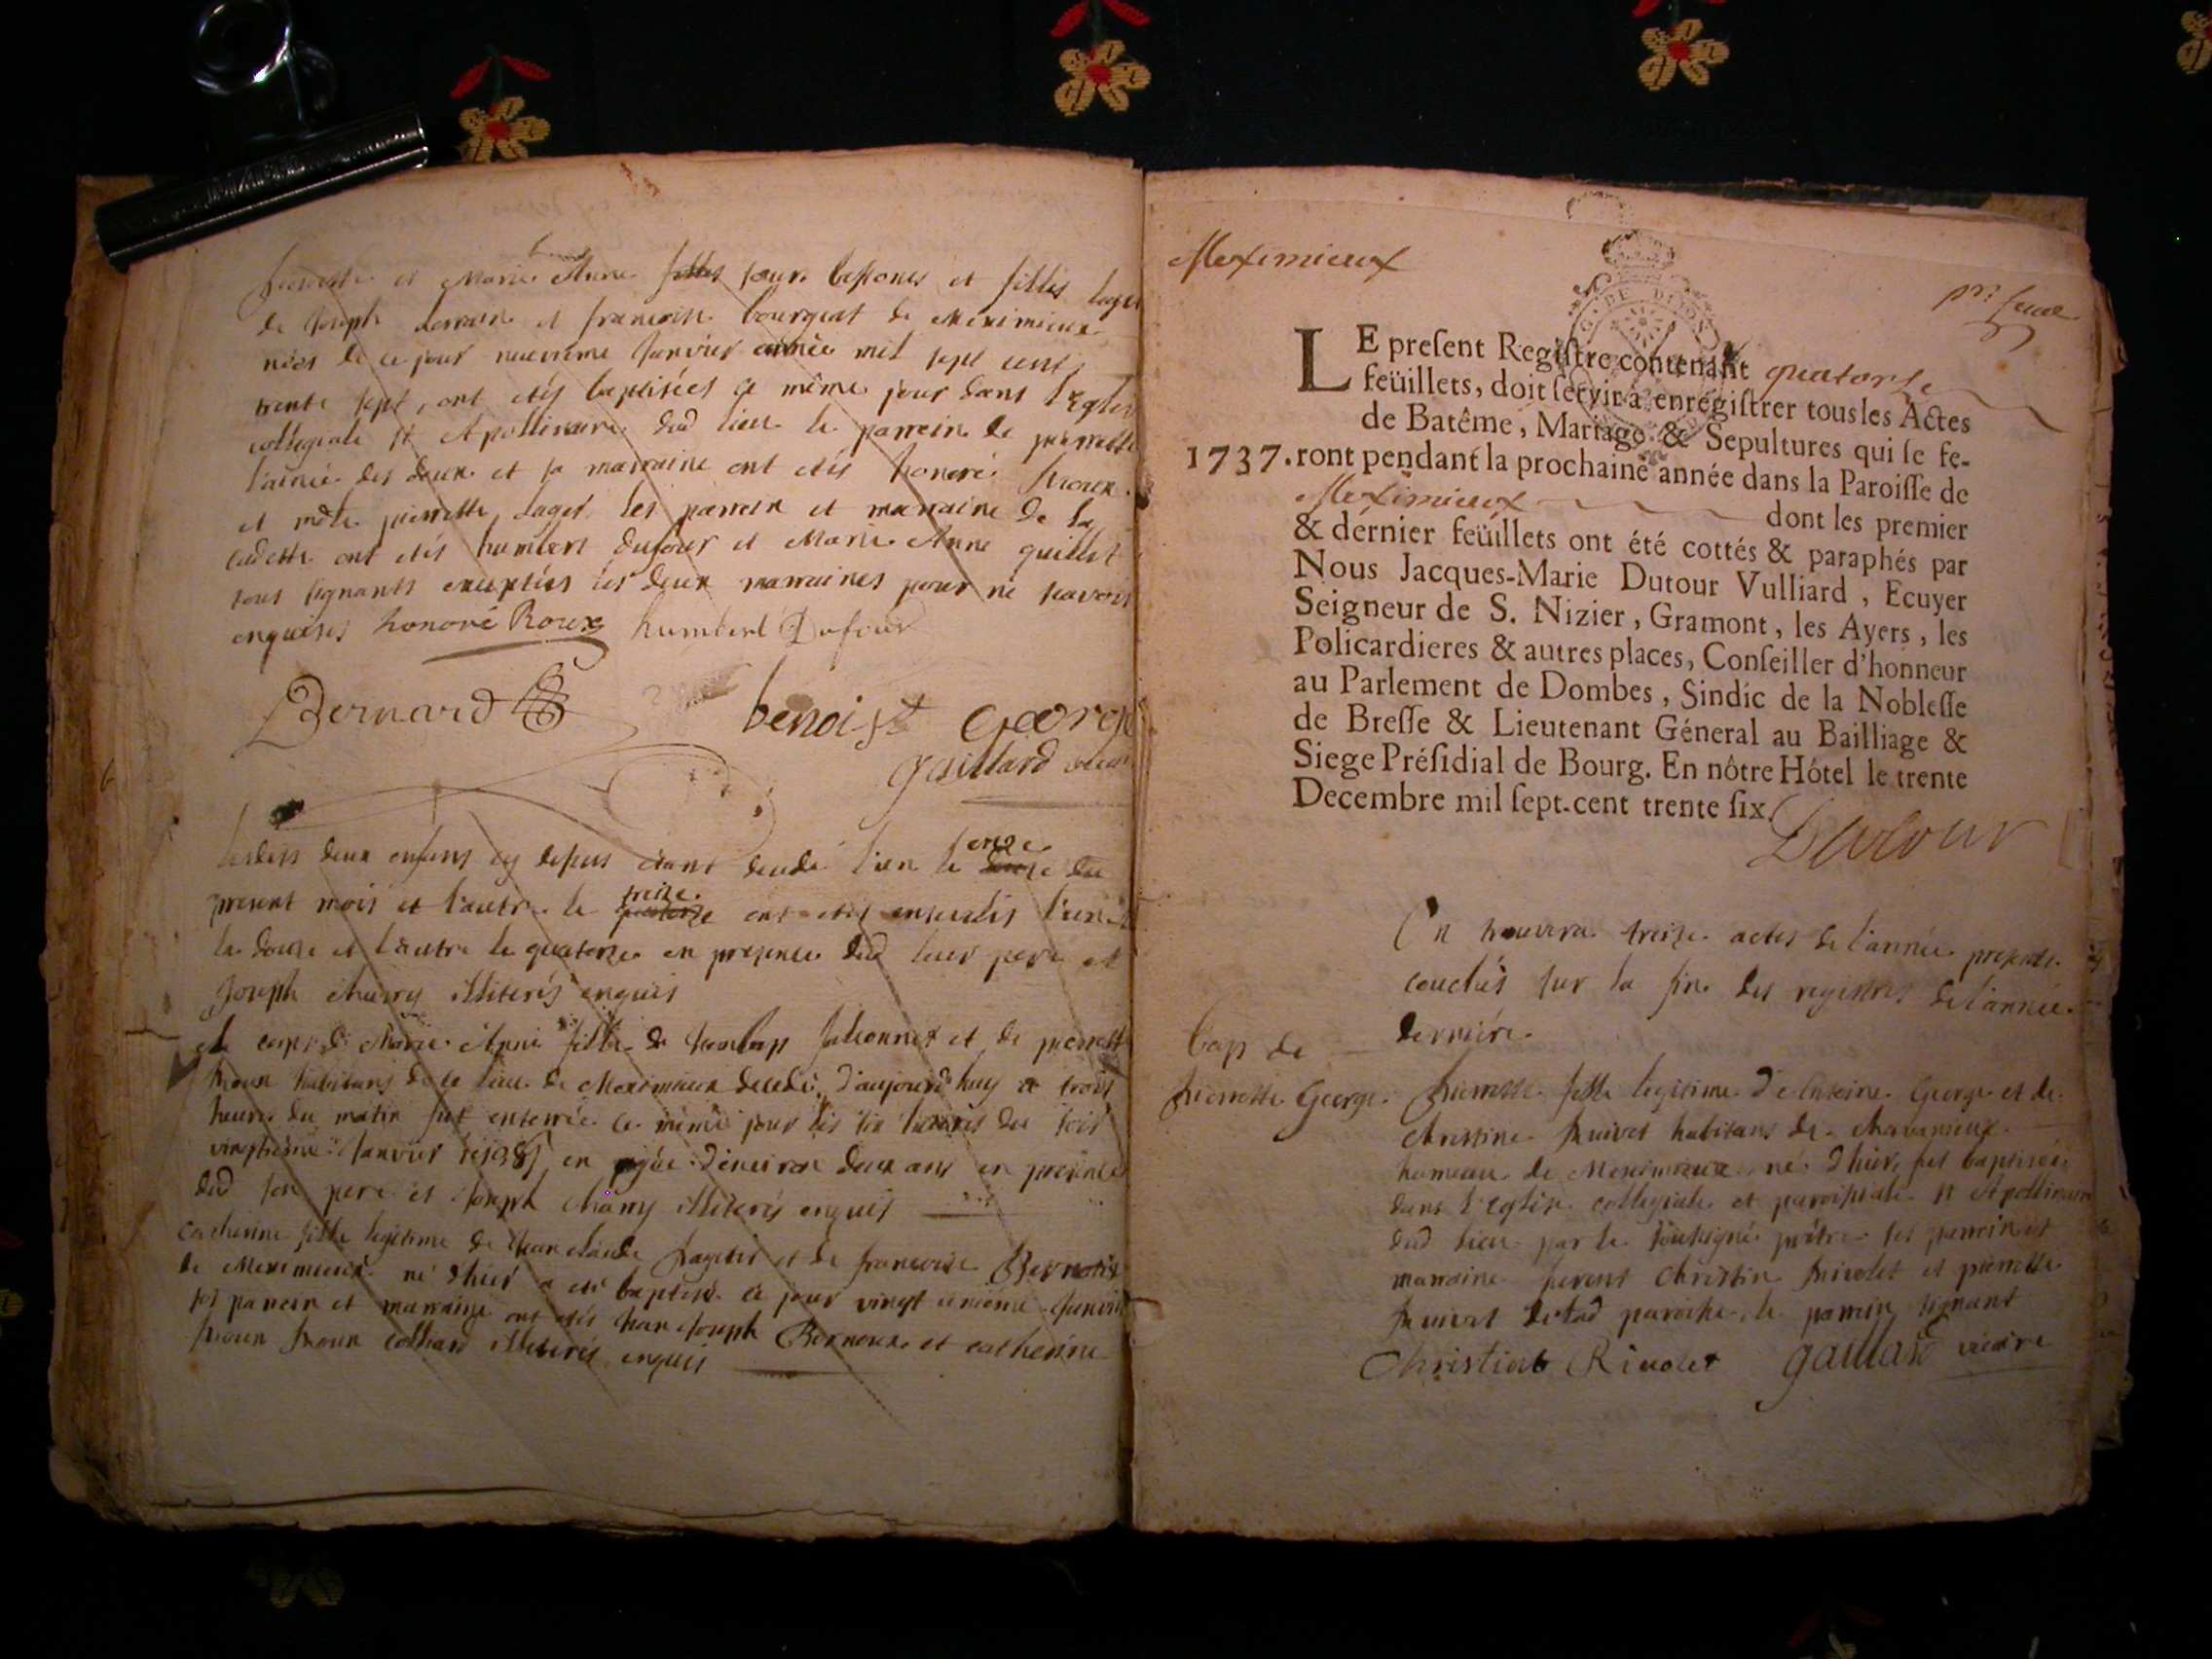 pierrette et Marie Anne filles sœurs bessones et filles legit
de Joseph et françoise bourgeat de Meximieux
nées de ce jour neuvieme Janvier année mil sept cent
trente sept, ont étés baptisées ce même jour dans l'Eglise
collegiale st Apollinaire dud lieu le parrein de pierrette
l'ainée des deux et sa marraine ont étés honoré Roux
et pierrette Lager les parrein et marraine de la
cadette ont étés humbert dufour et Marie Anne guillet
tous signants exceptées les deux marraines pour ne savoir
enquises honoré Roux humbert Dufour
Bernard benoist George
gaillard
lesdits deux enfans cy dessus étant decedé l'un le onze du
present mois et l'autre le treize ont étés ensevelis l'un
le douze et l'autre le quatorze en presence dud leur pere et
Joseph Charvy illiterés enquis
le corps de Marie Anne fille de et de pierrette
Roux habitans de ce lieu de Meximieux decedé d'aujourd'huy a trois
heures du matin fut enterrée ce même jour les six heures du soir
vingtieme Janvier en agée d'environ deux ans en presence
dud son pere et Joseph Charvy illiterés enquis
catherine fille legitime de Jean claude et de françoise
de Meximieux né d'hier a eté baptisé ce jour vingt unieme Janvier
ses parrein et marraine ont étés Jean Joseph Bernoux et catherine
Roux illiterés enquis
Meximieux
G. DE DIJON
LE preſent Regiſtre contenant quatorze
feüillets, doit ſervir à enregiſtrer tous les Actes
de Batême, Mariage & Sepultures qui ſe fe-
1737. ront pendant la prochaine année dans la Paroiſſe de
Meximieux dont les premier
& dernier feüillets ont été cottés & paraphés par
Nous Jacques-Marie Dutour Vulliard , Ecuyer
Seigneur de S. Nizier , Gramont , les Ayers , les
Policardieres & autres places, Conſeiller d'honneur
au Parlement de Dombes , Sindic de la Nobleſſe
de Breſſe & Lieutenant Géneral au Bailliage &
Siege Préſidial de Bourg. En nôtre Hôtel le trente
Decembre mil ſept-cent trente ſix.
Dutour
On trouvera treize actes de l'année presente
couchés sur la fin des registres de l'année
derniére.
bap de
pierrette George.
pierrette fille legitime d'Antoine George et de
christine habitans de Chavagnieux
hameau de Meximieux né d'hier fut baptisée
dans l'Eglise collegiale et paroissiale st Apollinaire
dud lieu par le soussigné prêtre ses parrein et
marraine furent christin Rivolet et pierrette
de lad paroisse, le parrein signant
Christian Riuolet gaillard vicaire